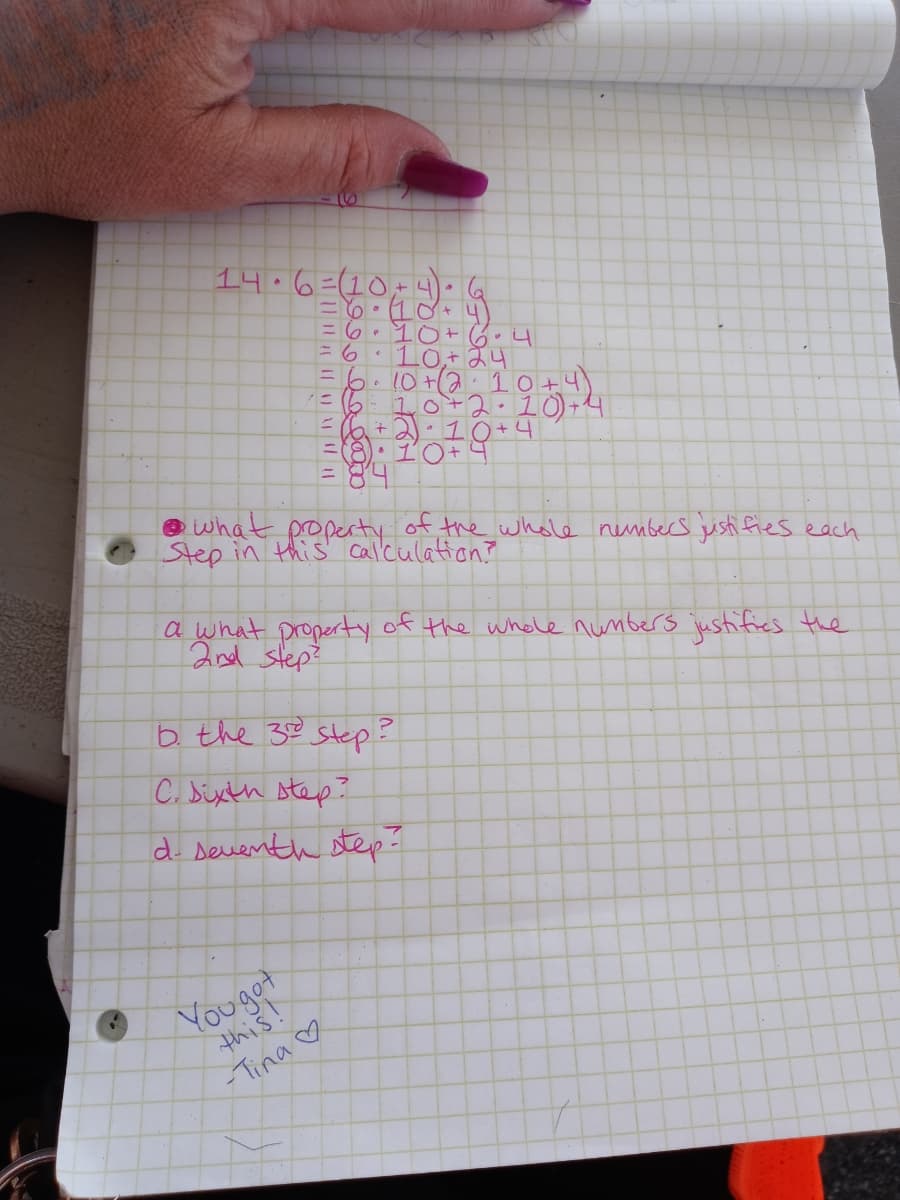 - 16
14 · 6 = (10 + 4) · 6
= 6 · (10 + 4)
= 6 · 10 + 6 · 4
= 6 · 10 + 24
= 6 · 10 + (2 · 10 + 4)
= (6 · 10 + 2 · 10) + 4
= (6 + 2) · 10 + 4
= (8) · 10 + 4
= 84
what property of the whole numbers justifies each
step in this calculation?
a what property of the whole numbers justifies the
2nd step?
b. the 3rd step?
C. sixth step?
d- seventh step?
You got
this!
-Tina ♡